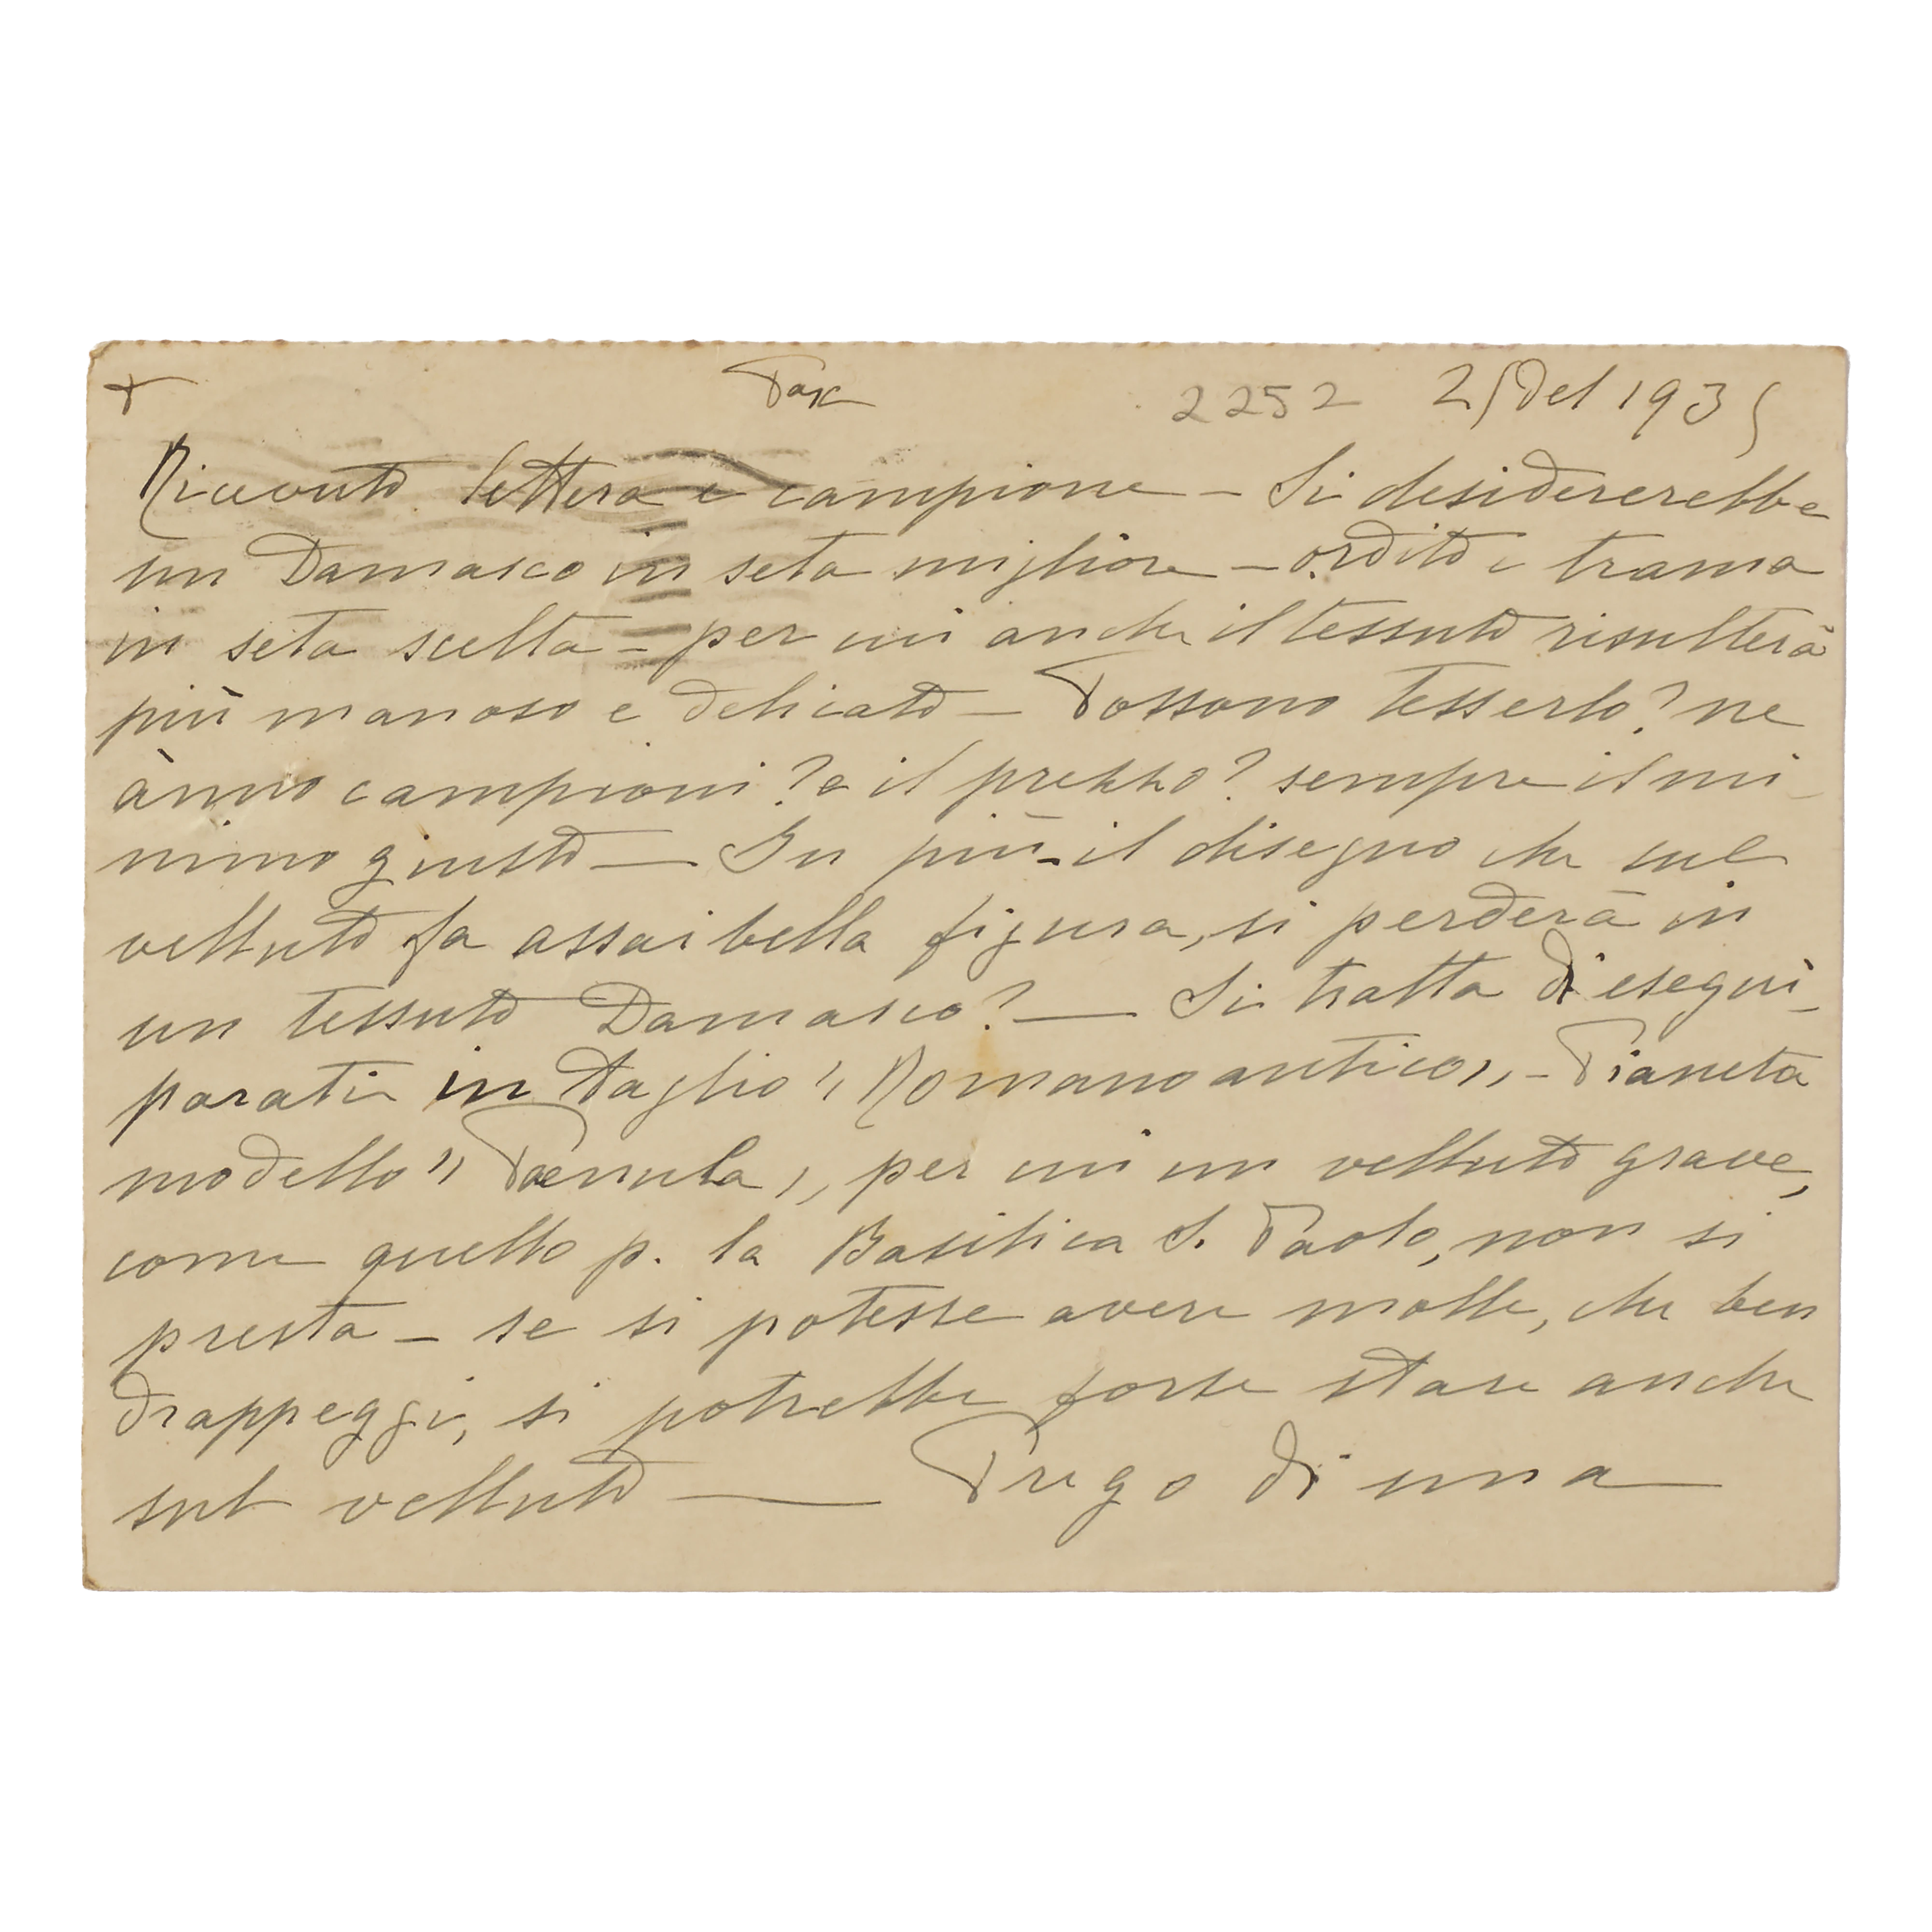 + Pax 2252 25 Del 1935
Ricevuto lettera e campione - Si desidererebbe
un Damasco in seta migliore - ordito e trama
in seta scelta - per cui anche il tessuto risulterà
più manoso e delicato - Possono tesserlo? ne
ànno campioni? e il prezzo? sempre il mi-
nimo giusto - In più - il disegno che sul
velluto fa assai bella figura, si perderà in
un tessuto Damasco? - Si tratta di esegui-
parati in taglio "Romano antico„ - Pianeta
modello "Paenula„, per cui un velluto grave,
come quello p. la Basilica S. Paolo, non si
presta - se si potesse avere molle, che ben
drappeggi, si potrebbe forse stare anche
sul velluto - Prego di una